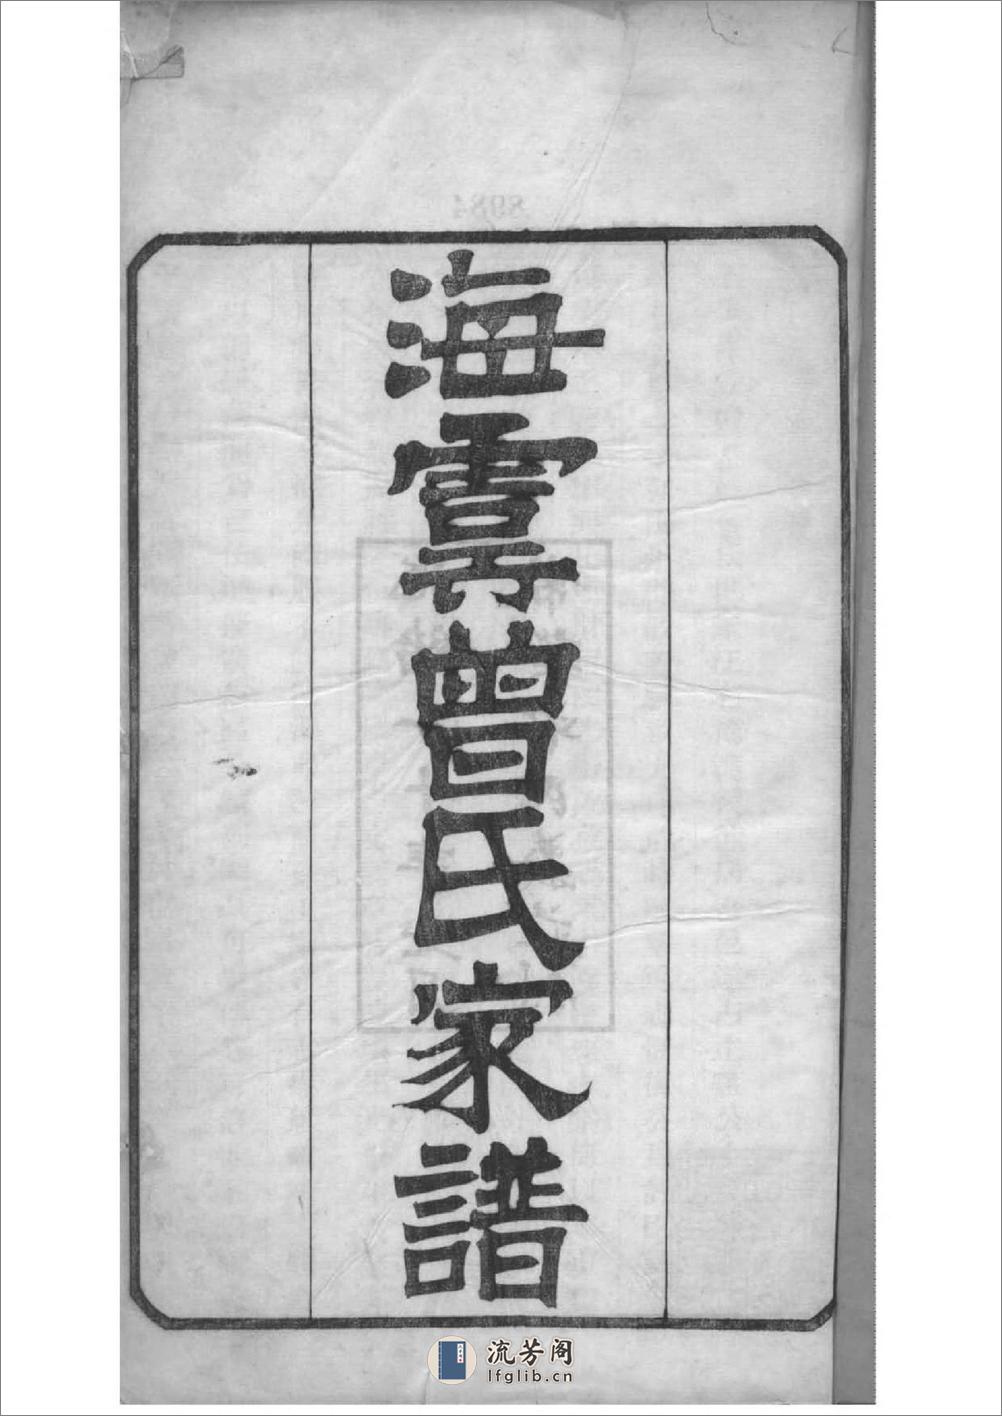 海虞曾氏家譜
流芳阁
lfglib.cn